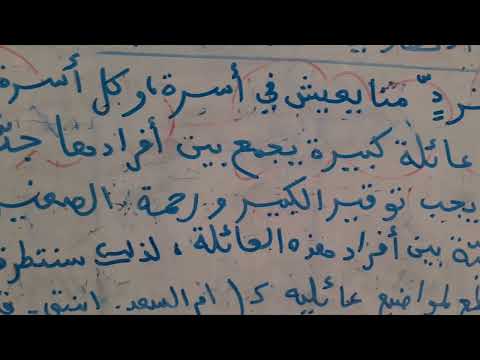 فردٍّ منا يعيش في أسرة، وكل أسرة
عائلة كبيرة يجمع بين أفرادها
يجب توقير الكبير ورحمة الصغير
بين أفراد هذه العائلة، لذلك سنتطرق
لمواضيع عائلية كـ (أم السعد.